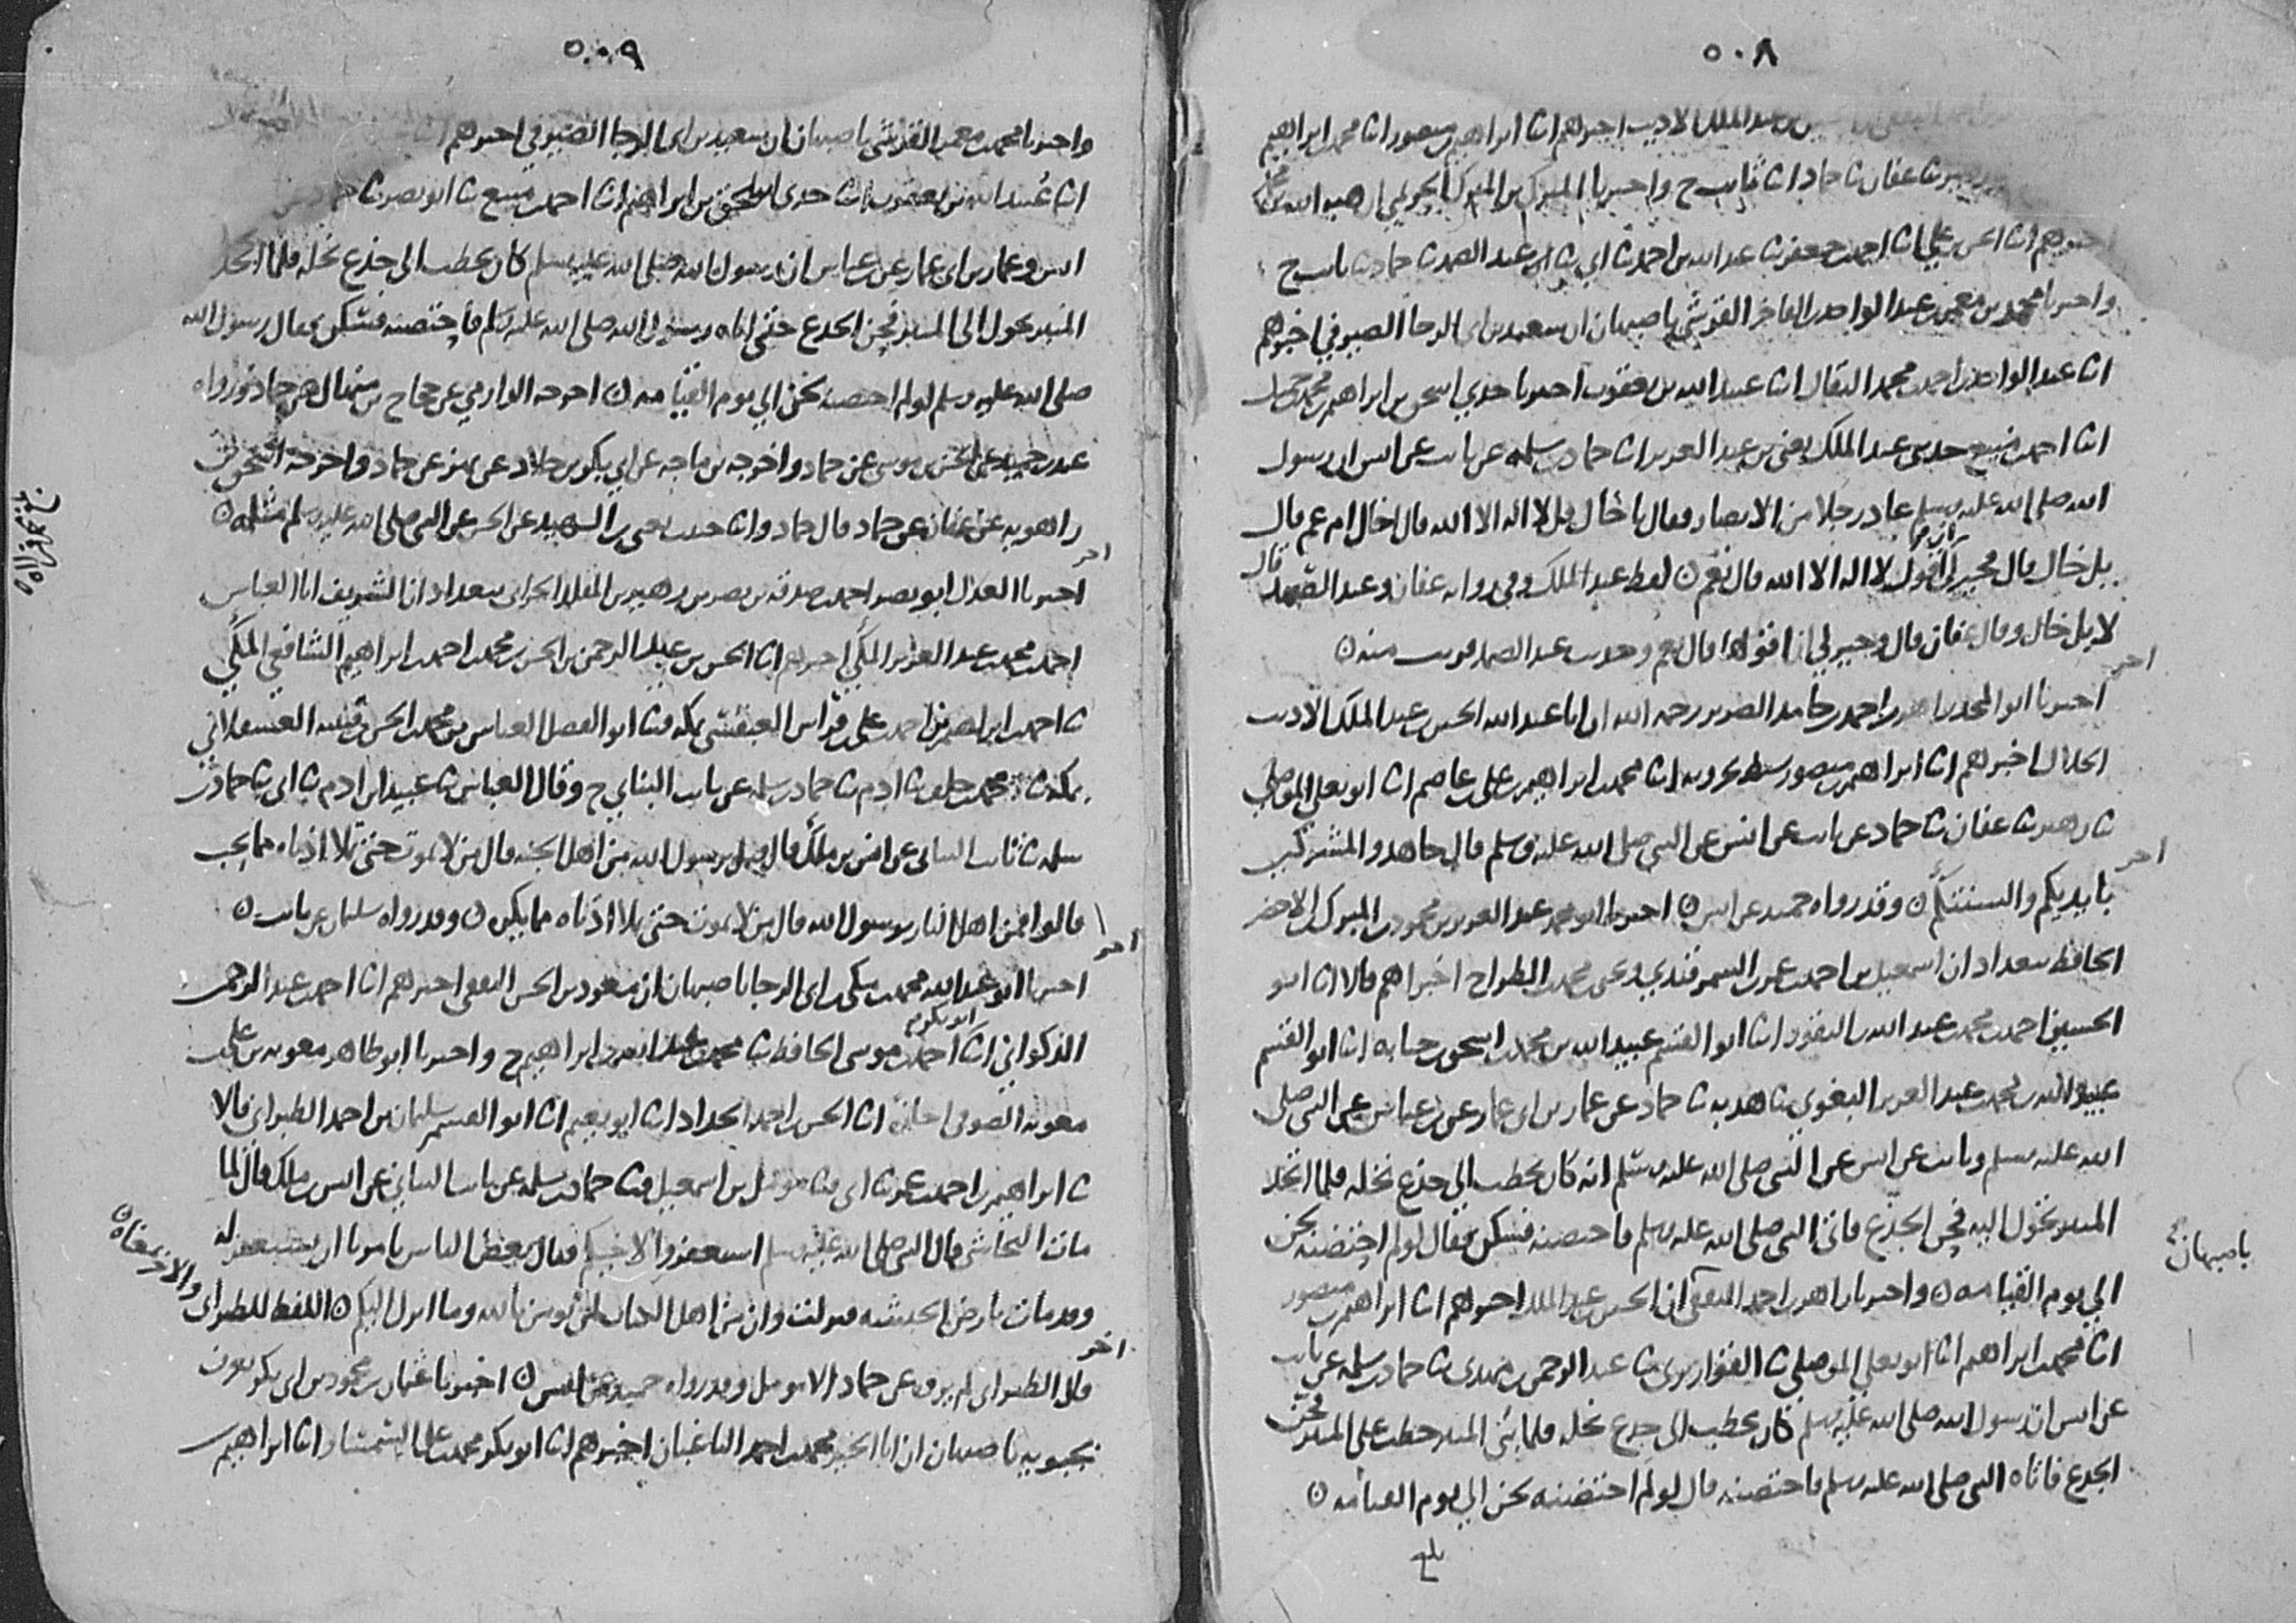 ٥٠٨
بن عبد الملك الاديب اخبرهم انا ابراهيم بن منصور انا محمد بن ابراهيم
ثنا عفان ثنا حماد انا ثابت ح واخبرنا المبرك بن المبرك الحريمي ان هبه الله بن محمد
اخبرهم انا الحسن بن علي انا احمد بن جعفر ثنا عبد الله بن احمد ثنا ابي ثنا عبد الصمد ثنا حماد ثنا ثابت ح
واخبرنا محمد بن معمر بن عبد الواحد بن الفاخر القرشي باصبهان ان سعيد بن ابي الرجا الصيرفي اخبرهم
انا عبد الواحد بن احمد بن محمد البقال انا عبيد الله بن يعقوب اخبرنا جدي اسحق بن ابراهيم بن محمد بن جميل
انا احمد بن منيع حدثني عبد الملك يعني بن عبد العزيز انا حماد بن سلمه عن ثابت عن انس ان رسول
الله صلى الله عليه وسلم عاد رجلا من الانصار فقال يا خال قل لا اله الا الله قال اخال ام عم قال
بل خال قال فخير لي ان اقول لا اله الا الله قال نعم ن لفظ عبد الملك وفي رواية عفان وعبد الصمد قال
لا بل خال وقال عفان قال وخير لي ان اقولها قال نعم وحديث عبد الصمد قريب منه ن
اخر
اخبرنا ابو المجد زاهر بن احمد بن حامد الضرير رحمه الله ان ابا عبد الله الحسين بن عبد الملك الاديب
الخلال اخبرهم انا ابراهيم بن منصور سبط بحرويه انا محمد بن ابراهيم بن علي بن عاصم انا ابو يعلى الموصلي
ثنا زهير ثنا عفان ثنا حماد عن ثابت عن انس عن النبي صلى الله عليه وسلم قال جاهدوا المشركين
اخر
بايديكم والسنتكم ن وقد رواه حميد عن انس ن اخبرنا ابو محمد عبد العزيز بن محمود بن المبرك بن الاخضر
الحافظ ببغداد ان اسمعيل بن احمد بن عمر السمرقندي ويحيى بن محمد بن الطراح اخبراهم قالا انا ابو
الحسين احمد بن محمد بن عبد الله بن النقور انا ابو القسم عبيد الله بن محمد بن اسحق بن حبابه انا ابو القسم
عبد الله بن محمد بن عبد العزيز البغوي ثنا هدبه ثنا حماد عن عمار بن ابي عمار عن بن عباس عن النبي صلى
الله عليه وسلم وثابت عن انس عن النبي صلى الله عليه وسلم انه كان يخطب الي جذع نخله فلما اتخذ
المنبر تحول اليه فحن الجذع فاتى النبي صلى الله عليه وسلم فاحتضنه فسكن فقال لو لم احتضنه لحن
باصبهان
الي يوم القيامه ن واخبرنا زاهر بن احمد الثقفي ان الحسين بن عبد الملك اخبرهم انا ابراهيم بن منصور
انا محمد بن ابراهيم انا ابو يعلي الموصلي ثنا القواريري ثنا عبد الرحمن بن مهدي ثنا حماد بن سلمه عن ثابت
عن انس ان رسول الله صلى الله عليه وسلم كان يخطب الى جذع نخله فلما بنى المنبر خطب على المنبر فحن
الجذع فاتاه النبي صلى الله عليه وسلم فاحتضنه قال لو لم احتضنه لحن الي يوم القيامه ن
بلغ
٥٠٩
واخبرنا محمد بن معمر القرشي باصبهان ان سعيد بن ابي الرجا الصيرفي اخبرهم
انا عبيد الله بن يعقوب انا جدي اسحق بن ابراهيم انا احمد بن منيع ثنا ابو نصر ثنا حماد عن
انس وعمار بن ابي عمار عن بن عباس ان رسول الله صلى الله عليه وسلم كان يخطب الى جذع نخله فلما اتخذ
المنبر تحول الى المنبر فحن الجذع حتى اتاه رسول الله صلى الله عليه وسلم فاحتضنه فسكن فقال رسول الله
صلى الله عليه وسلم لو لم احتضنه لحن الي يوم القيامه ن اخرجه الدارمي عن حجاج بن منهال عن حماد ورواه
عبد بن حميد عن الحسن بن موسى عن حماد واخرجه بن ماجه عن ابي بكر بن خلاد عن بهز عن حماد واخرجه اسحق بن
راهويه عن عفان عن حماد قال حماد وانا حبيب يعني بن الشهيد عن الحسن عن النبي صلى الله عليه وسلم مثله ن
اخر
اخبرنا العدل ابو نصر احمد بن صدقه بن نصر بن زهير بن المقلد الحراني ببغداد ان الشريف ابا العباس
احمد بن محمد بن عبد العزيز المكي اخبرهم انا الحسن بن عبد الرحمن بن الحسن بن محمد بن احمد بن ابراهيم الشافعي المكي
ثنا احمد بن ابراهيم بن احمد بن علي بن فراس العبقسي بمكه ثنا ابو الفضل العباس بن محمد بن الحسن بن قتيبه العسقلاني
بمكه ثنا محمد بن خلف ثنا ادم ثنا حماد بن سلمه عن ثابت البناني ح وقال العباس ثنا عبيد بن ادم ثنا ابي ثنا حماد بن
سلمه ثنا ثابت البناني عن انس بن ملك قال قيل يرسول الله من اهل الجنه قال من لا يموت حتى تملا اذناه مما يحب
قالوا فمن اهل النار يرسول الله قال من لا يموت حتى تملا اذناه مما يكره ن وقد رواه سليمان عن ثابت ن
اخر
اخبرنا ابو عبد الله محمد بن مكي بن ابي الرجا باصبهان ان مسعود بن الحسن الثقفي اخبرهم انا احمد بن عبد الرحمن
الذكواني انا ابو بكر احمد بن موسى الحافظ ثنا محمد بن عبد الله بن ابراهيم ح واخبرنا ابو طاهر معويه بن علي بن
معويه الصوفي اجازة انا الحسن بن احمد الحداد انا ابو نعيم انا ابو القسم سليمان بن احمد الطبراني قالا
ثنا ابراهيم بن احمد بن عمر ثنا ابي ثنا مومل بن اسمعيل ثنا حماد بن سلمه عن ثابت البناني عن انس بن ملك قال لما
مات النجاشي قال النبي صلى الله عليه وسلم استغفروا لاخيكم فقال بعض الناس يامرنا ان نستغفر له
وقد مات بارض الحبشه فنزلت وان من اهل الكتاب لمن يومن بالله وما انزل اليكم ن اللفظ للطبراني
والاخر بمعناه ن
اخر
قال الطبراني لم يروه عن حماد الا مومل وقد رواه حميد عن انس ن اخبرنا عثمان بن محمود بن ابي بكر بن
نجبويه باصبهان ان ابا الخير محمد بن احمد الباغبان اخبرهم انا ابو بكر محمد بن علي السمسار انا ابراهيم بن